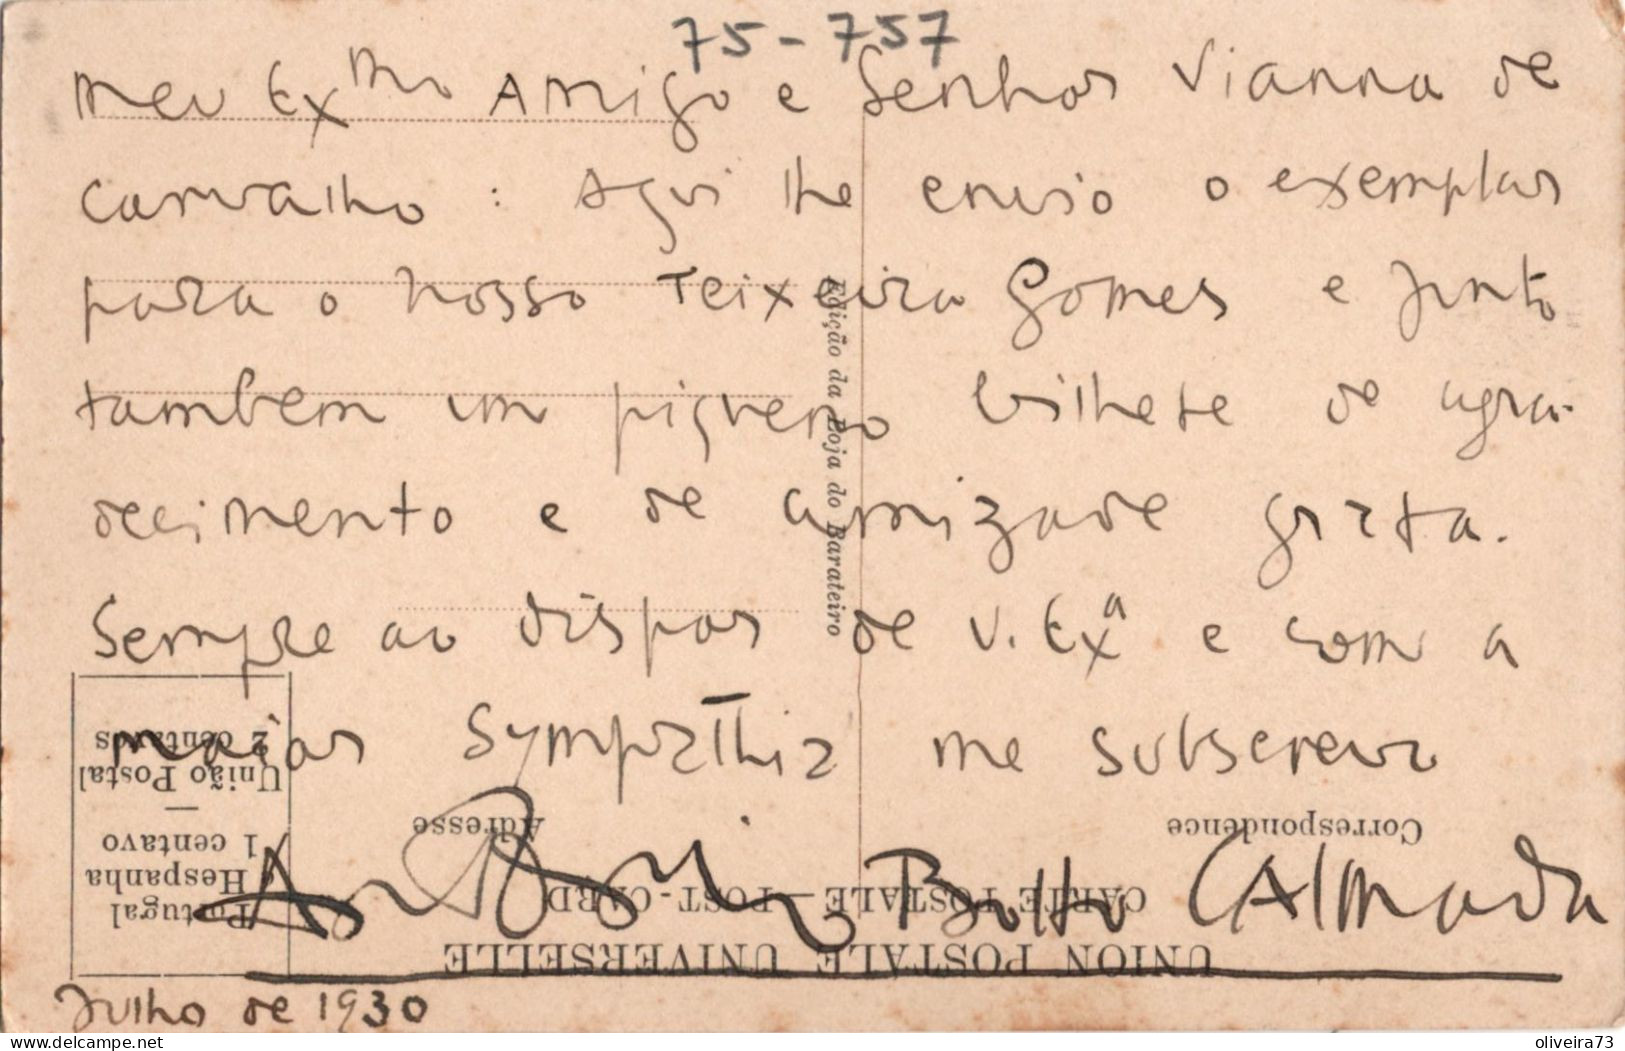 75-757
Meu Exmo Amigo e Senhor Vianna de
Carvalho: Aqui lhe envio o exemplar
para o nosso Teixeira Gomes e junto
tambem um piqueno bilhete de agra-
decimento e de amizade grata.
Sempre ao dispor de V. Exa e com a
maior sympathia me subscrevo
Botto
CAlmada
Julho de 1930
Edição da Loja do Barateiro
UNION POSTALE UNIVERSELLE
CARTE POSTALE — POST-CARD
Correspondence
Adresse
Portugal
e Hespanha
1 centavo
—
União Postal
2 centavos
oliveira73
delcampe.net